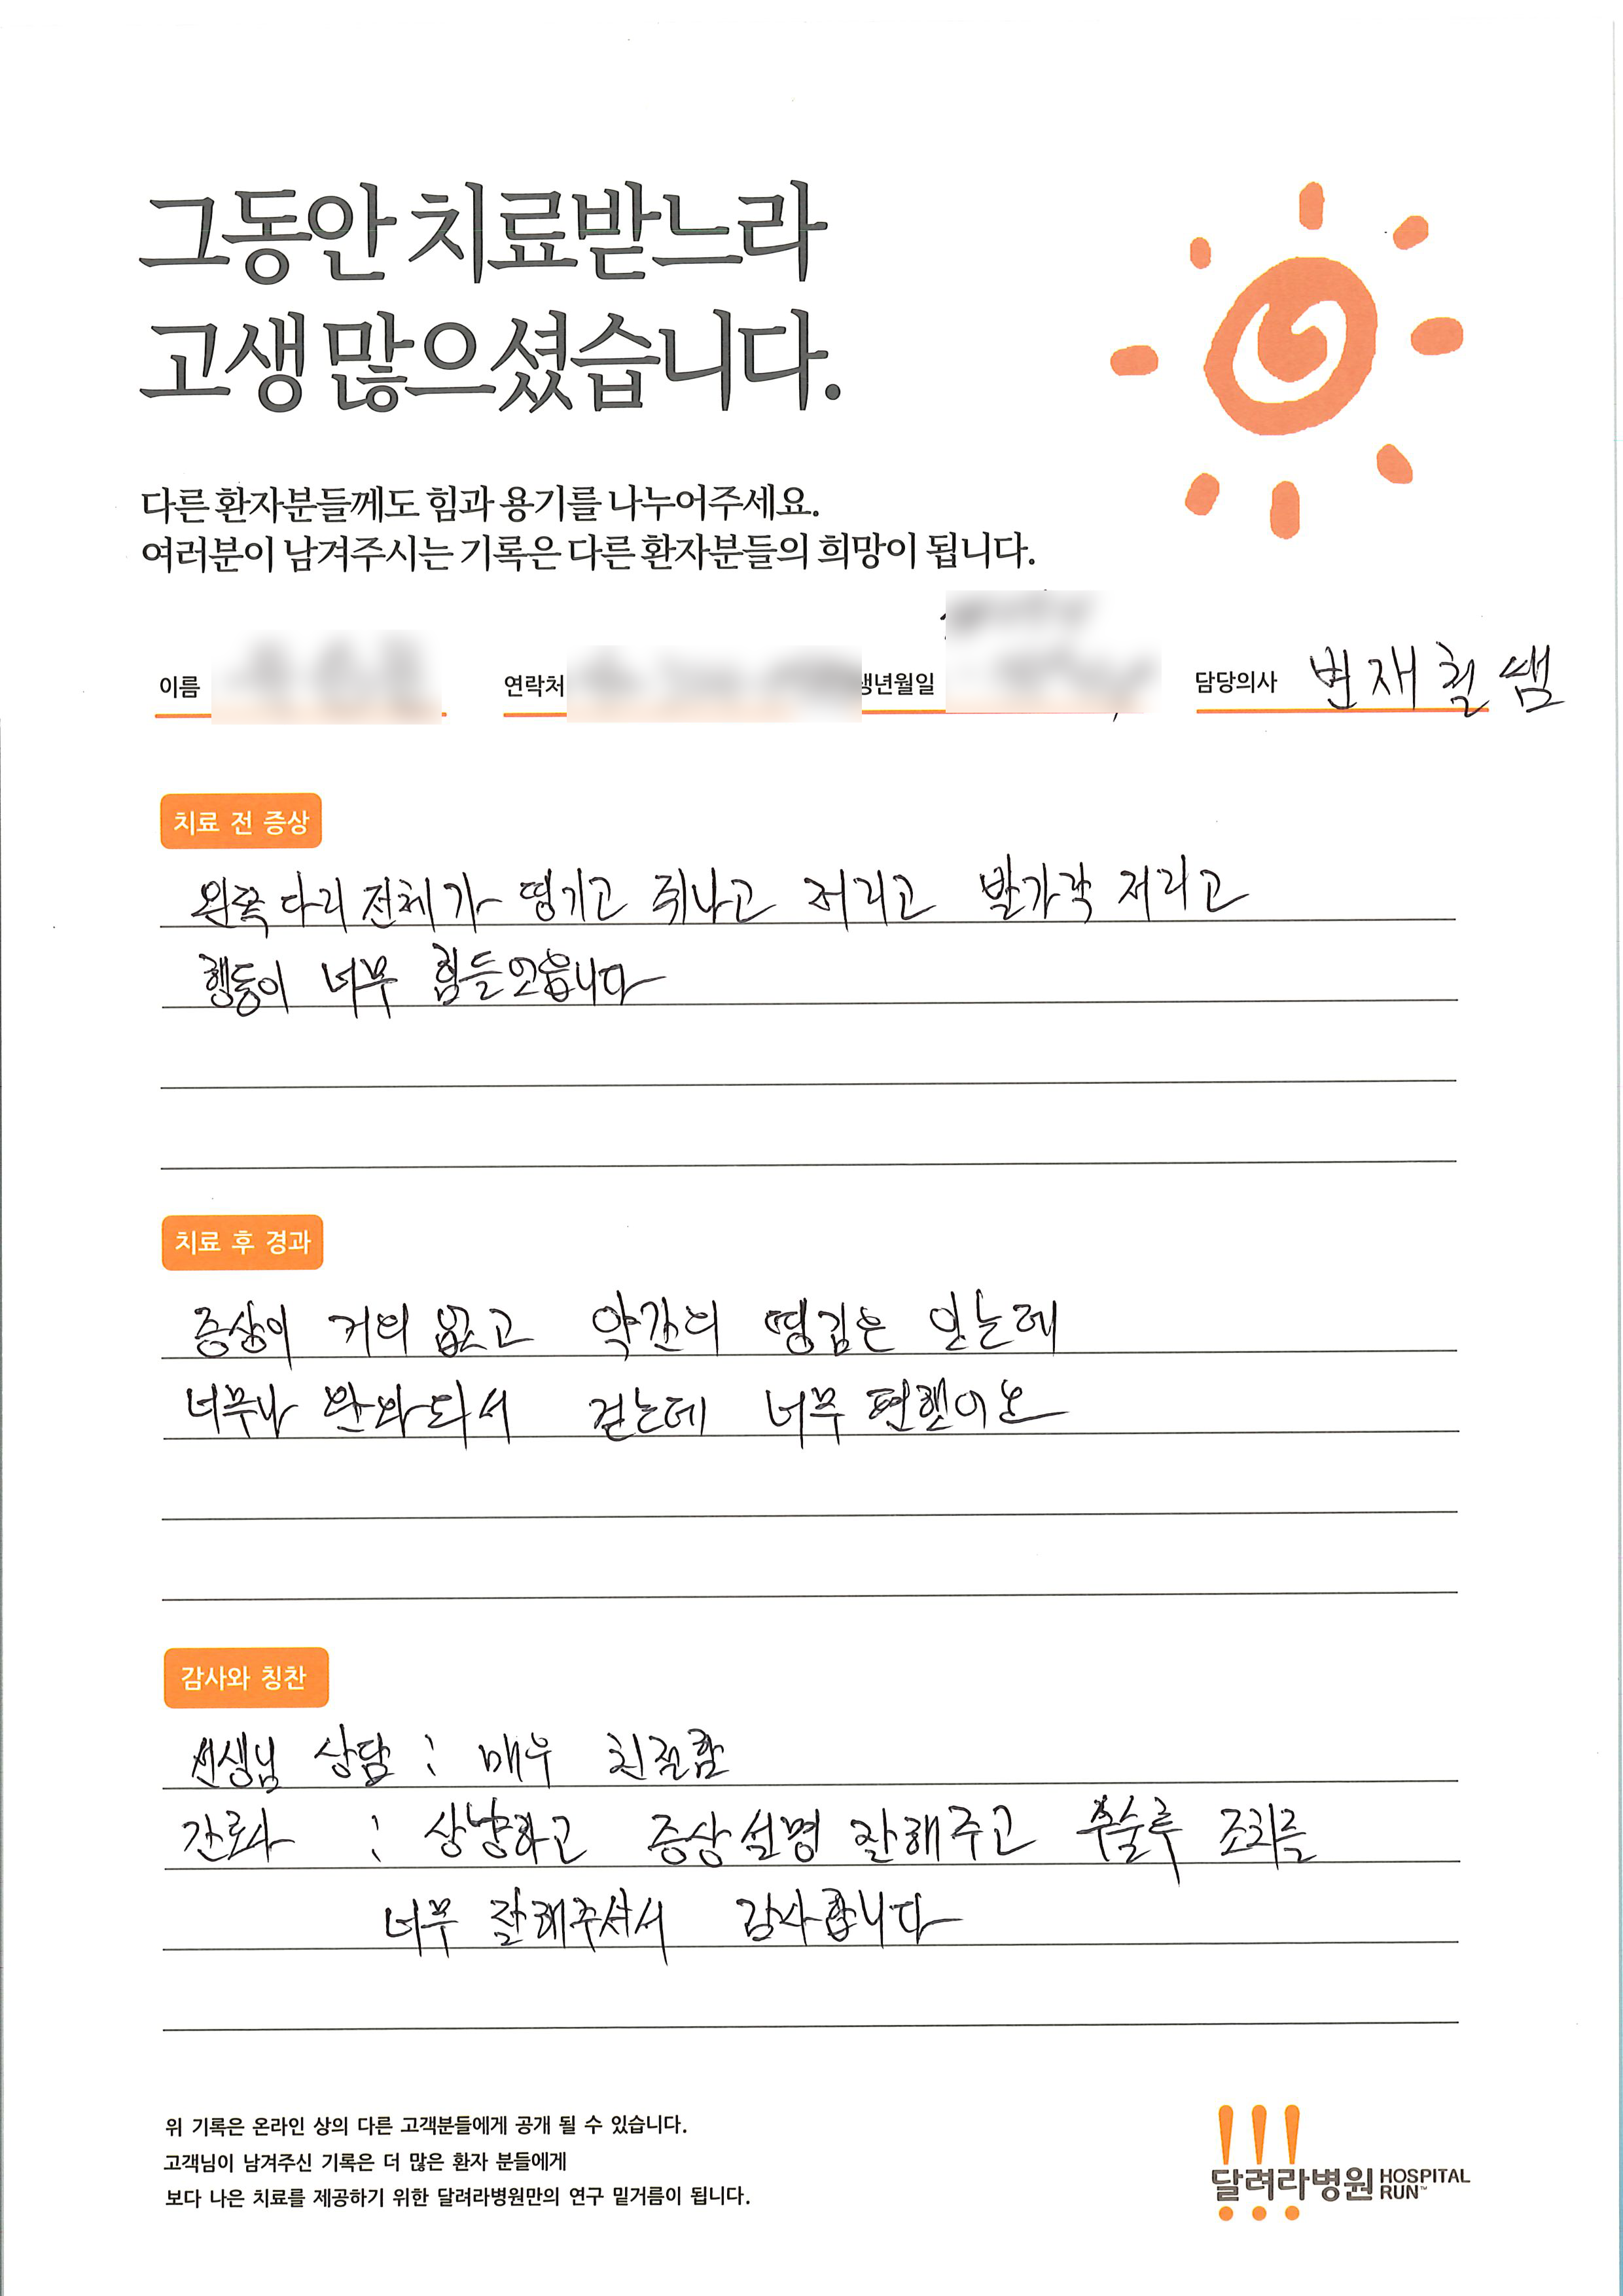 그동안 치료받느라
고생 많으셨습니다.
다른 환자분들께도 힘과 용기를 나누어주세요.
여러분이 남겨주시는 기록은 다른 환자분들의 희망이 됩니다.
이름 연락처 생년월일 담당의사 변재철 쌤
치료 전 증상
왼쪽 다리 전체가 띵기고 쥐나고 저리고 발가락 저리고
행동이 너무 힘들었읍니다
치료 후 경과
증상이 거의 없고 약간의 띵김은 있는데
너무나 완화되서 걷는데 너무 편했어요
감사와 칭찬
선생님 상담 : 매우 친절함
간호사 : 상냥하고 증상설명 잘해주고 조치를
너무 잘해주셔서 감사합니다
위 기록은 온라인 상의 다른 고객분들에게 공개 될 수 있습니다.
고객님이 남겨주신 기록은 더 많은 환자 분들에게
보다 나은 치료를 제공하기 위한 달려라병원만의 연구 밑거름이 됩니다.
달려라병원 HOSPITAL RUN™